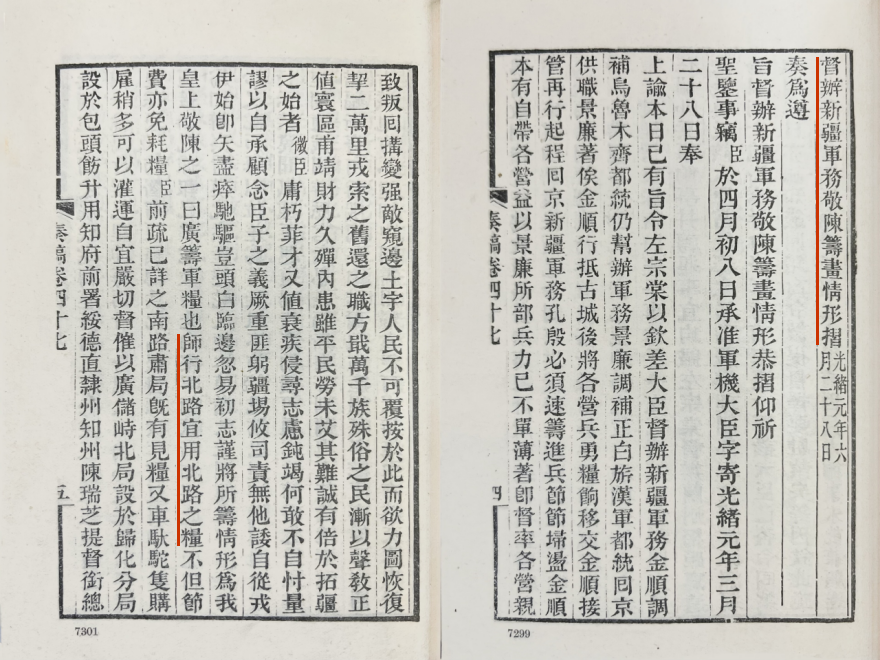 督辦新疆軍務敬陳籌畫情形摺 光緒元年六月二十八日
奏爲遵
旨督辦新疆軍務敬陳籌畫情形恭摺仰祈
聖鑒事竊臣於四月初八日承准軍機大臣字寄光緒元年三月
二十八日奉
上諭本日已有旨令左宗棠以欽差大臣督辦新疆軍務金順調
補烏魯木齊都統仍幫辦軍務景廉調補正白旂漢軍都統囘京
供職景廉著俟金順行抵古城後將各營兵勇糧餉移交金順接
管再行起程囘京新疆軍務孔殷必須速籌進兵節節埽盪金順
本有自帶各營益以景廉所部兵力已不單薄著卽督率各營親
奏稿卷四十七 四
7299
致叛囘搆變强敵窺邊土宇人民不可覆按於此而欲力圖恢復
挈二萬里戎索之舊還之職方戢萬千族殊俗之民漸以聲敎正
値寰區甫靖財力久殫內患雖平民勞未艾其難誠有倍於拓疆
之始者微臣庸朽菲才又値衰疾侵尋志慮鈍竭何敢不自忖量
謬以自承顧念臣子之義厥重匪躬疆埸攸司責無他諉自從戎
伊始卽矢盡瘁馳驅豈頭白臨邊忽易初志謹將所籌情形爲我
皇上敬陳之一曰廣籌軍糧也師行北路宜用北路之糧不但節
費亦免耗糧臣前疏已詳之南路肅局旣有見糧又車馱駝隻購
雇稍多可以灌運自宜嚴切督催以廣儲峙北局設於歸化分局
設於包頭飭升用知府前署綏德直隸州知州陳瑞芝提督銜總
奏稿卷四十七 五
7301